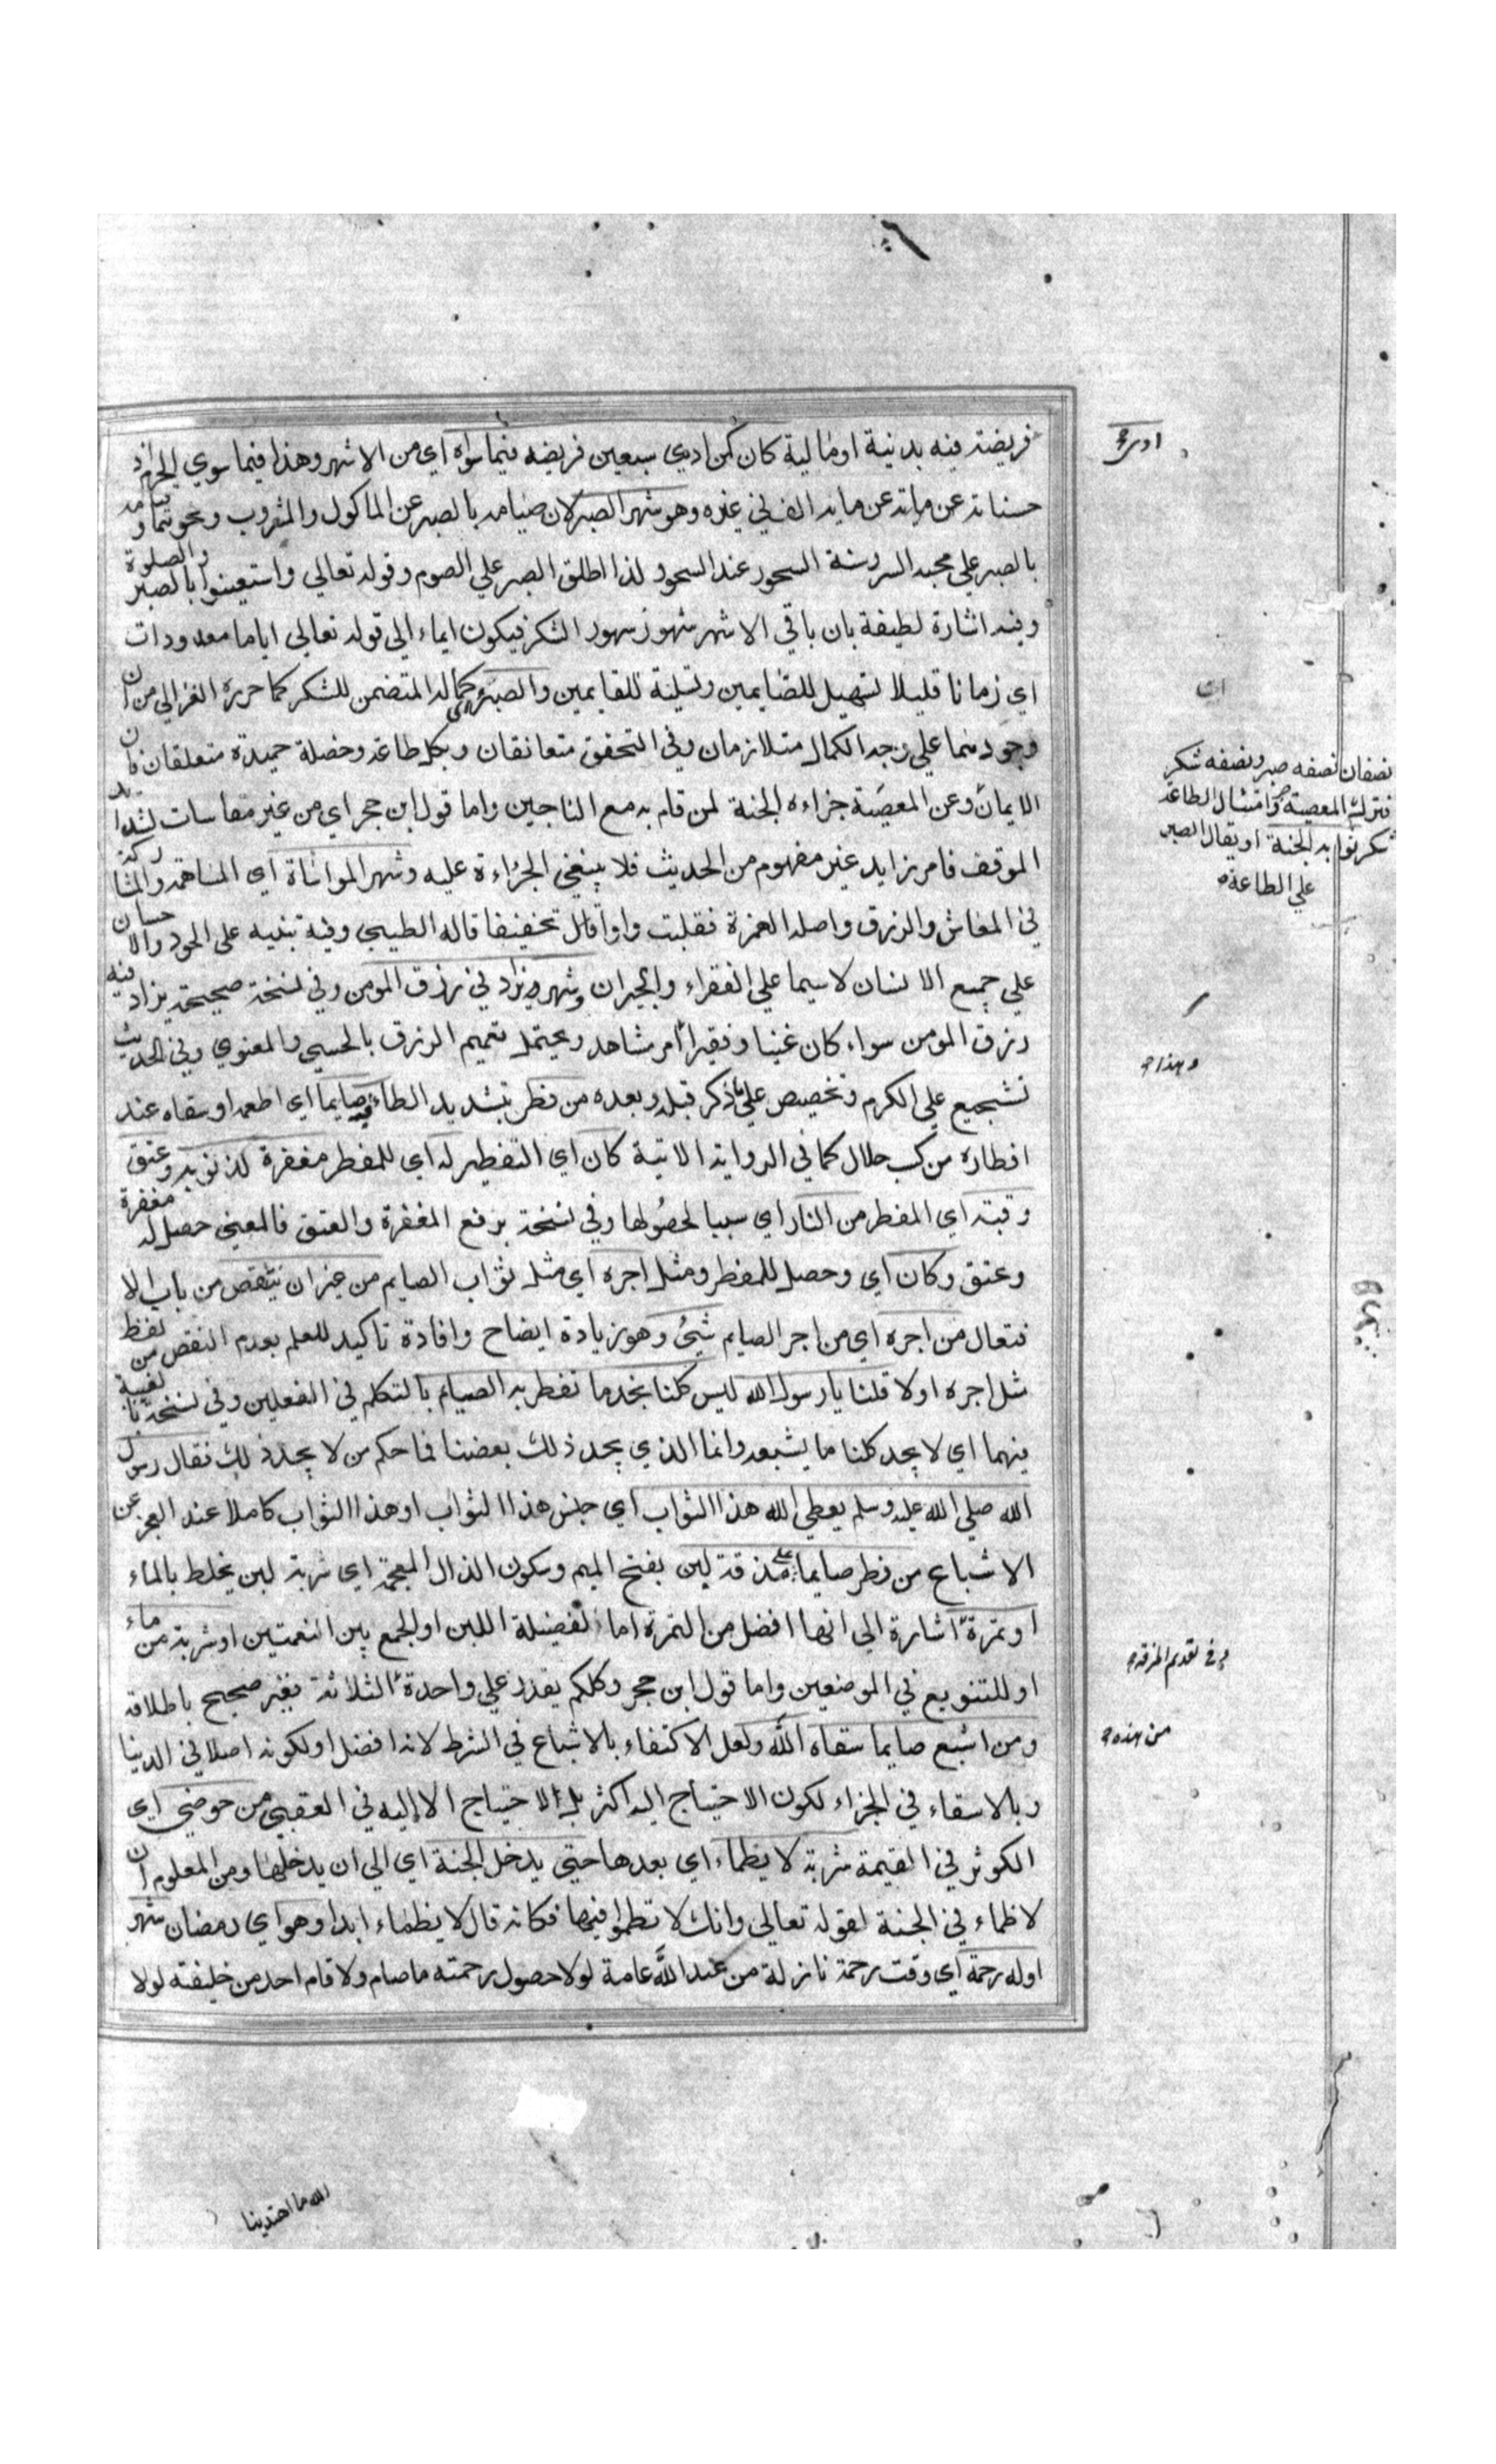 فريضة فيه بدنية او مالية كان كمن ادي سبعين فريضه فيما سواه اي من الاشهر وهذا فيما سوي الحرم اذ
حسناته عن مأية عن ماية الف في غيره وهو شهر الصبر لان صيامه بالصبر عن الماكول والمشروب ونحوهما و قيامه
بالصبر علي محبه السر وسنة السحور عند السحور لذا اطلق الصبر علي الصوم وقوله تعالي واستعينوا بالصبر والصلوة
وفيه اشارة لطيفة بان باقي الاشهر شهور الشكر فيكون ايماء الي قوله تعالي اياما معدودات
اي زمانا قليلا تسهيل للصايمين وتسلية للقايمين والصبر كماله المتضمن للشكر كما حرره الغزالي من ان
وجودهما علي وجه الكمال متلازمان وفي التحقق متعانقان وبكل طاعة وخصلة حميدة متعلقان فان
الايمان وعن المعصية جزاءه الجنة لمن قام به مع الناجين واما قول ابن حجر اي من غير مقاسات لشدايد
الموقف فامر زايد غير مفهوم من الحديث فلا ينبغي الجراءة عليه وشهر المواساة اي المساهمة والمشاركة
في المعاش والرزق واصله الهمزة فقلبت واوا تخفيفا قاله الطيبي وفيه تنبيه على الجود والاحسان
علي جميع الانسان لا سيما علي الفقراء والجيران وشهر يزاد في رزق المومن وفي نسخة صحيحة يزاد فيه
رزق المومن سواء كان غنيا او فقيرا امر مشاهد ويحتمل تعميم الرزق بالحسي والمعنوي وفي الحديث
تشجيع علي الكرم وتخصيص علي ما ذكر قبله وبعده من فطر بتشديد الطاء فيه صايما اي اطعمه او سقاه عند
افطاره من كسب حلال كما في الرواية الاتية كان اي التفطير له اي للمفطر مغفرة لذنوبه وعتق
رقبته اي المفطر من النار اي سببا لحصولها وفي نسخة برفع المغفرة والعتق فالمعني حصل له مغفرة
وعتق وكان اي وحصل للمفطر ومثل اجره اي مثل ثواب الصايم من غير ان ينتقص من باب الا
فتعال من اجره اي من اجر الصايم شيئ وهو زيادة ايضاح وافادة تاكيد للعلم بعدم النقص من لفظ
مثل اجره اولا قلنا يا رسول الله ليس كلنا نجد ما نفطر به الصيام بالتكلم في الفعلين وفي نسخة بالغيبة
فيهما اي لا يجد كلنا ما يشبعه وانما الذي يجد ذلك بعضنا فما حكم من لا يجد ذلك فقال رسول
الله صلي الله عليه وسلم يعطي الله هذا الثواب اي جنس هذا الثواب او هذا الثواب كاملا عند العجز عن
الاشباع من فطر صايما علي مذقة لبن بفتح الميم وسكون الذال المعجمة اي شربة لبن يخلط بالماء
او تمرة اشارة الي انها افضل من التمرة اما لفضيلة اللبن او لجمع بين النعمتين او شربة من ماء
او للتنويع في الموضعين واما قول ابن حجر وكلكم يقدر علي واحدة الثلاثة فغير صحيح باطلاقه
ومن اشبع صايما سقاه الله ولعل الاكتفاء بالاشباع في الشرط لانه افضل او لكونه اصلا في الدنيا
وبالاسقاء في الجزاء لكون الاحتياج اليه اكثر بل لا احتياج الا اليه في العقبي من حوضي اي
الكوثر في القيمة شربة لا يظماء اي بعدها حتي يدخل الجنة اي الي ان يدخلها ومن المعلوم ان
لا ظماء في الجنة لقوله تعالي وانك لا تظموا فيها فكانه قال لا يظماء ابدا وهو اي رمضان شهر
اوله رحمة اي وقت رحمة نازلة من عند الله عامة لولا حصول رحمته ما صام ولا قام احد من خليفته لولا
نصفان نصفه صبر ونصفه شكر
فترك المعصية صبر وامتثال الطاعة
شكر ثوابه الجنة او يقال الصبر
علي الطاعة
وهذا
وفي تقديم المذقة
من هذه
الله ما اهتدينا